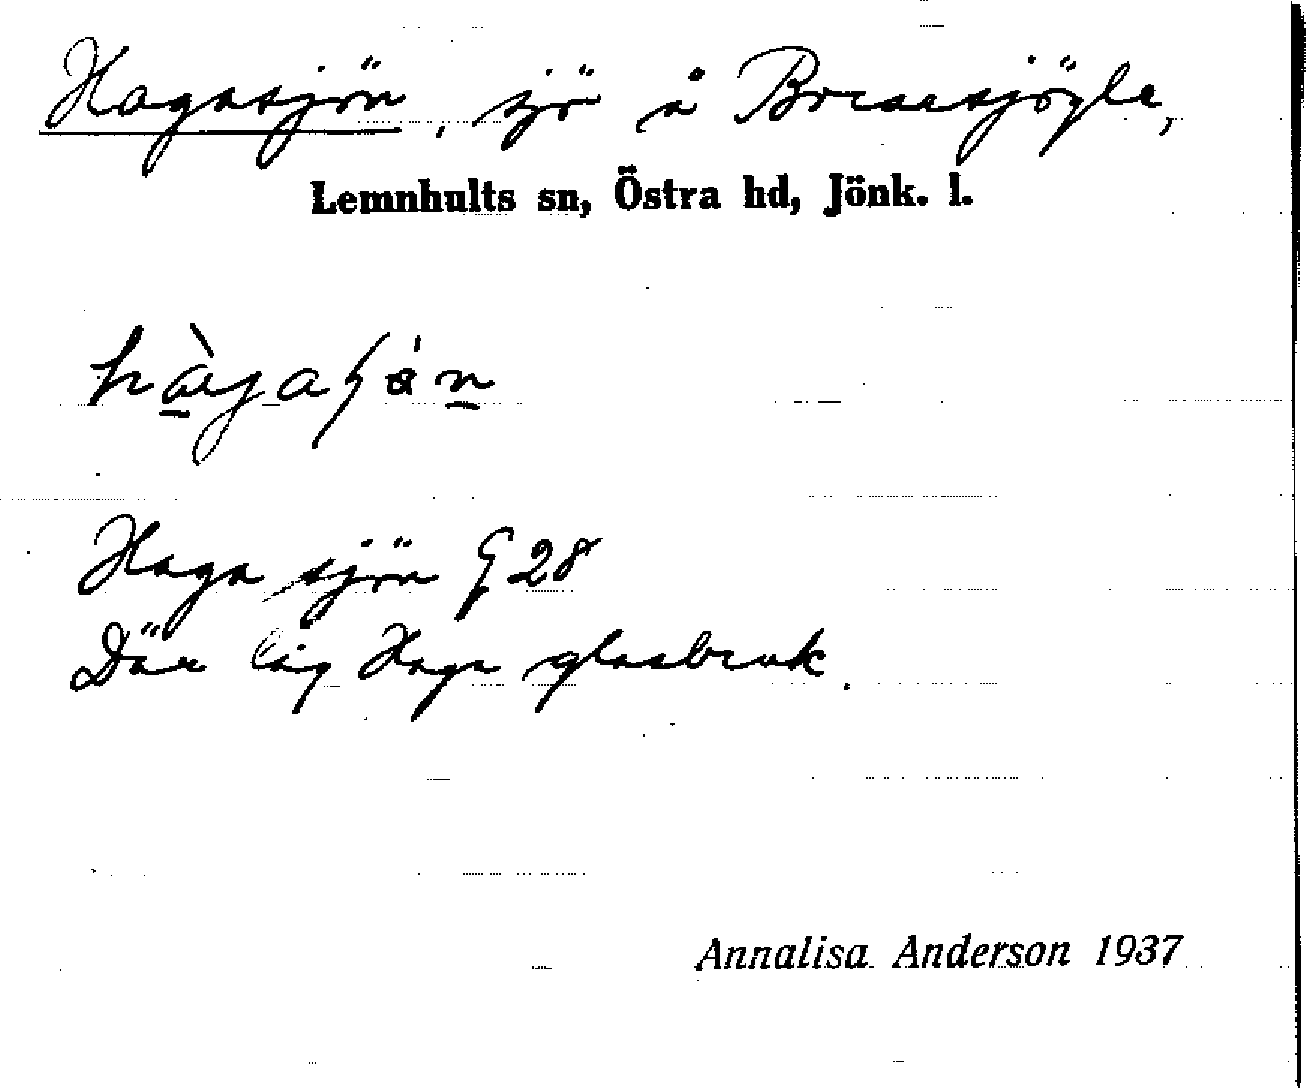 Hagasjön, sjö å Broaesjögle,
Lemnhults sn, Östra hd, Jönk. l.
Haga sjön G 28
Där låg Haga glasbruk.
Annalisa Anderson 1937